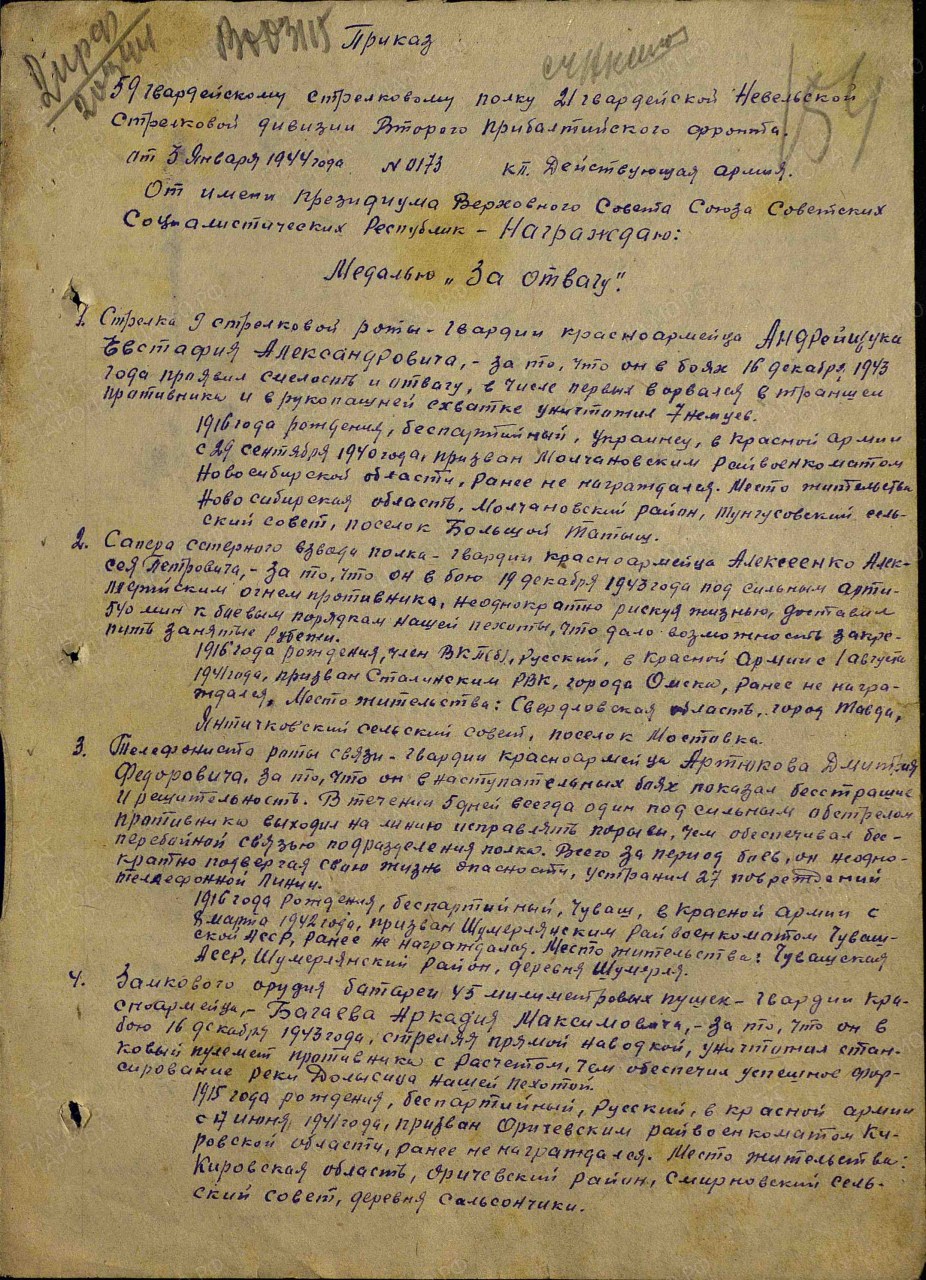 Приказ
59 гвардейскому стрелковому полку 21 гвардейской Невельской
стрелковой дивизии Второго Прибалтийского фронта.
от 3 Января 1944 года N 0173 кп. Действующая армия.
От имени Президиума Верховного Совета Союза Советских
Социалистических Республик - Награждаю:
Медалью „За отвагу".
1. Стрелка 9 стрелковой роты - гвардии красноармейца АНДРЕЙЩУКА
Евстафия Александровича, - за то, что он в боях 16 декабря 1943
года проявил смелость и отвагу, в числе первых ворвался в траншеи
противника и в рукопашней схватке уничтожил 7 немцев.
1916 года рождения, беспартийный, украинец, в Красной армии
с 29 сентября 1940 года, призван Молчановским Райвоенкоматом
Новосибирской области, ранее не награждался. Место жительства
Новосибирская область, Молчановский район, Тунгусовский сель-
ский совет, поселок Большой Татыш.
2. Сапера саперного взвода полка - гвардии красноармейца Алексеенко Алек-
сея Петровича, - за то, что он в бою 19 декабря 1943 года под сильным арти-
лерийским огнем противника, неоднократно рискуя жизнью, доставил
540 мин к боевым порядкам нашей пехоты, что дало возможность закре-
пить занятые рубежи.
1916 года рождения, член ВКП(б), Русский, в Красной Армии с 1 августа
1941 года, призван Сталинским РВК, города Омска, ранее не награ-
ждался, Место жительства: Свердловская область, город Тавда,
Янтичковский сельский совет, поселок Мостовка.
3. Телефониста роты связи - гвардии красноармейца Артюкова Дмитрия
Федоровича, за то, что он в наступательных боях показал бесстрашие
и решительность. В течении 5 дней всегда один под сильным обстрелом
противника выходил на линию исправлять порывы, чем обеспечивал бес-
перебойной связью подразделения полка. Всего за период боев, он неодно-
кратно подвергая свою жизнь опасности, устранил 27 повреждений
телефонной линии.
1916 года рождения, беспартийный, Чуваш, в Красной армии с
8 марта 1942 года, призван Шумерлянским Райвоенкоматом Чуваш-
ской АССР, ранее не награждался. Место жительства: Чувашская
АССР, Шумерлянский район, деревня Шумерля.
4. Замкового орудия батареи 45 милиметровых пушек - гвардии кра-
сноармейца, - Багаева Аркадия Максимовича, - за то, что он в
бою 16 декабря 1943 года, стреляя прямой наводкой, уничтожил стан-
ковый пулемет противника с расчетом, чем обеспечил успешное фор-
сирование реки Долысица нашей пехотой.
1915 года рождения, беспартийный, Русский, в красной армии
с июня 1941 года, призван Оричевским райвоенкоматом Ки-
ровской области, ранее не награждался. Место жительства:
Кировская область, Оричевский район, Смирновский сель-
ский совет, деревня Сальсончики.